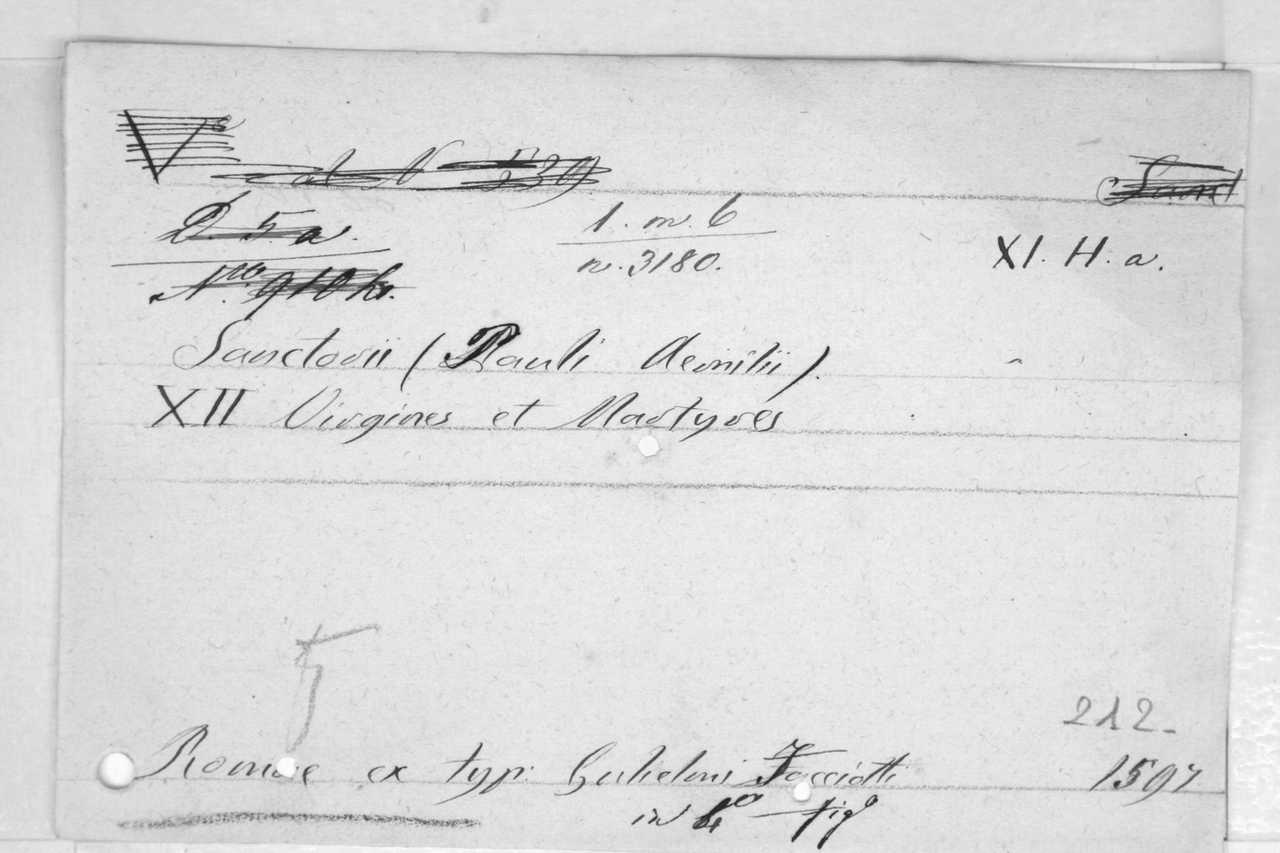 539
D 5 a.
1. m. 6
n. 3180.
XI. H. a.
N.ro 910 
Sanctorii (Pauli Aemilii).
XII Virgines et Martyres
5
212-
Romae ex typ: Gulielmi Facciotti 1597
in 4o fig